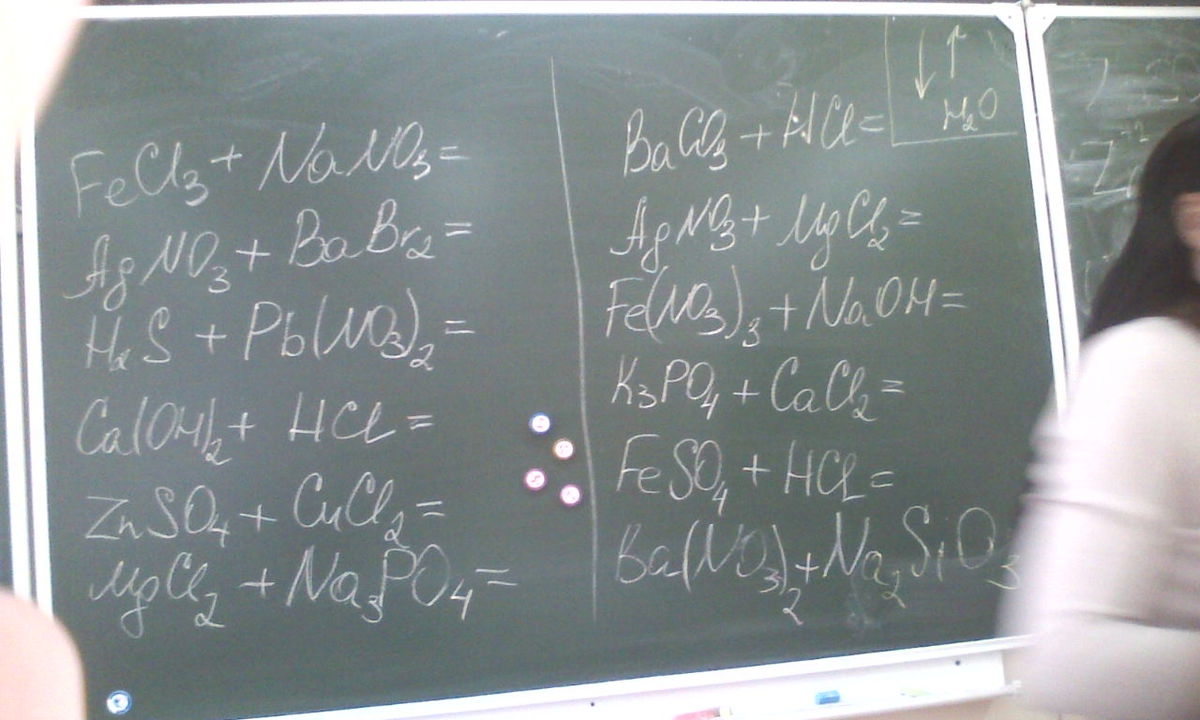 FeCl₃ + NaNO₃ =
AgNO₃ + BaBr₂ =
H₂S + Pb(NO₃)₂ =
Ca(OH)₂ + HCl =
ZnSO₄ + CuCl₂ =
MgCl₂ + Na₃PO₄ =
BaCO₃ + HCl =
AgNO₃ + MgCl₂ =
Fe(NO₃)₃ + NaOH =
K₃PO₄ + CaCl₂ =
FeSO₄ + HCl =
Ba(NO₃)₂ + Na₂SiO₃
↓ ↑
H₂O